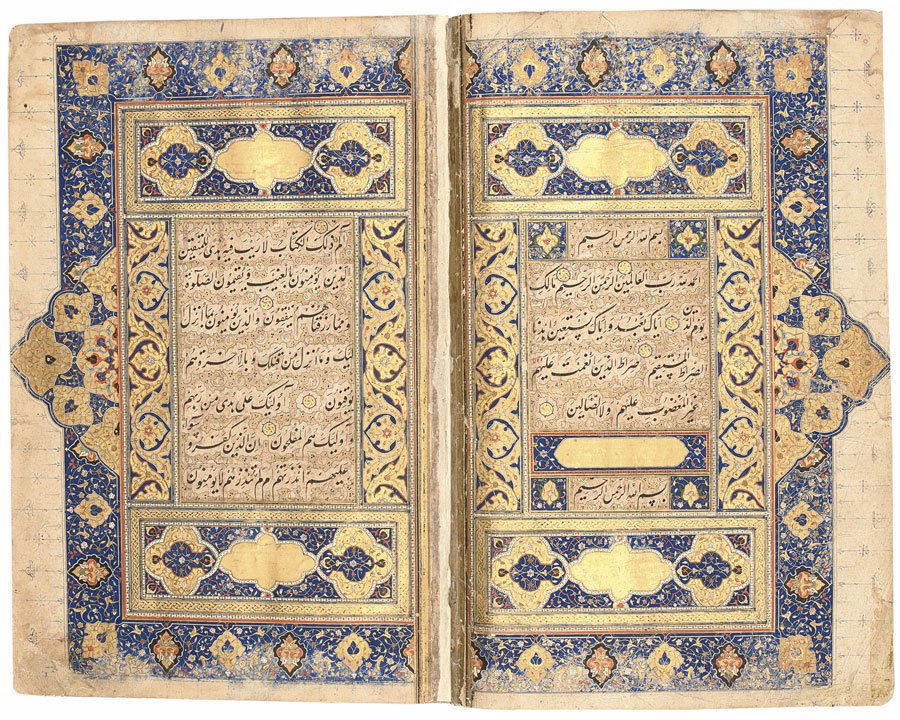 بسم الله الرحمن الرحيم
الحمد لله رب العالمين الرحمن الرحيم مالك
يوم الدين اياك نعبد و اياك نستعين اهدنا
الصراط المستقيم صراط الذين انعمت عليهم
غير المغضوب عليهم ولا الضالين
بسم الله الرحمن الرحيم
الم ذلك الكتاب لا ريب فيه هدى للمتقين
الذين يؤمنون بالغيب ويقيمون الصلوة
ومما رزقناهم ينفقون والذين يؤمنون بما انزل
اليك وما انزل من قبلك وبالاخرة هم
يوقنون اولئك على هدى من ربهم
واولئك هم المفلحون ان الذين كفروا سواء
عليهم ءانذرتهم ام لم تنذرهم لا يؤمنون